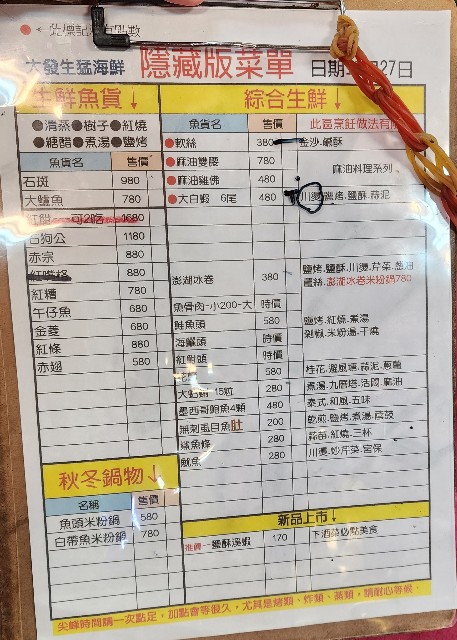 大發生猛海鮮 隱藏版菜單 日期
27日
生鮮魚貨↓
●清蒸●樹子●紅燒
●糖醋●煮湯●鹽烤
魚貨名 售價
石斑 980
大鱸魚 780
紅䱽 可2吃 1680
石狗公 1180
赤宗 880
880
紅糟 780
午仔魚 680
金菱 680
紅條 880
赤翅 580
秋冬鍋物↓
名稱 售價
魚頭米粉鍋 580
白帶魚米粉鍋 780
綜合生鮮↓
魚貨名 售價 此區烹飪做法有限
●軟絲 380 金沙.鹹酥
●麻油雙腰 780 麻油料理系列
●麻油雞佛 480
●大白蝦 6尾 480 川燙.鹽烤.鹽酥.蒜泥
澎湖冰卷 380 鹽烤.鹽酥.川燙.芹菜.蔥油
薑絲.澎湖冰卷米粉鍋780
魚骨肉-小200-大 時價
鮭魚頭 580 鹽烤.紅燒.煮湯
海鱺頭 時價 剁椒.米粉湯.干燒
紅魽頭 時價
580 桂花.避風塘.蒜泥.蔥鹽
15粒 280 煮湯.九層塔.活閰.麻油
墨西哥鮑魚4顆 480 泰式.和風.五味
無刺虱目魚肚 200 乾煎.鹽烤.煮湯.蔭豉
鯊魚條 280 蒜苗.紅燒.三杯
魷魚 280 川燙.炒芹菜.宮保
新品上市↓
推薦--鹽酥溪蝦 170 下酒菜必點美食
尖峰時間請一次點足，加點會等很久，尤其是烤類、炸類、蒸類，請耐心等候。